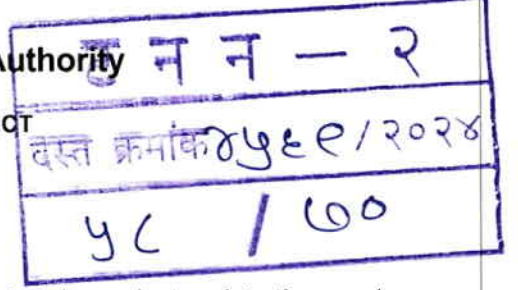 Authority
ट न न - २
CT
दस्त क्रमांक ४५६९/२०२४
५८ / ७०